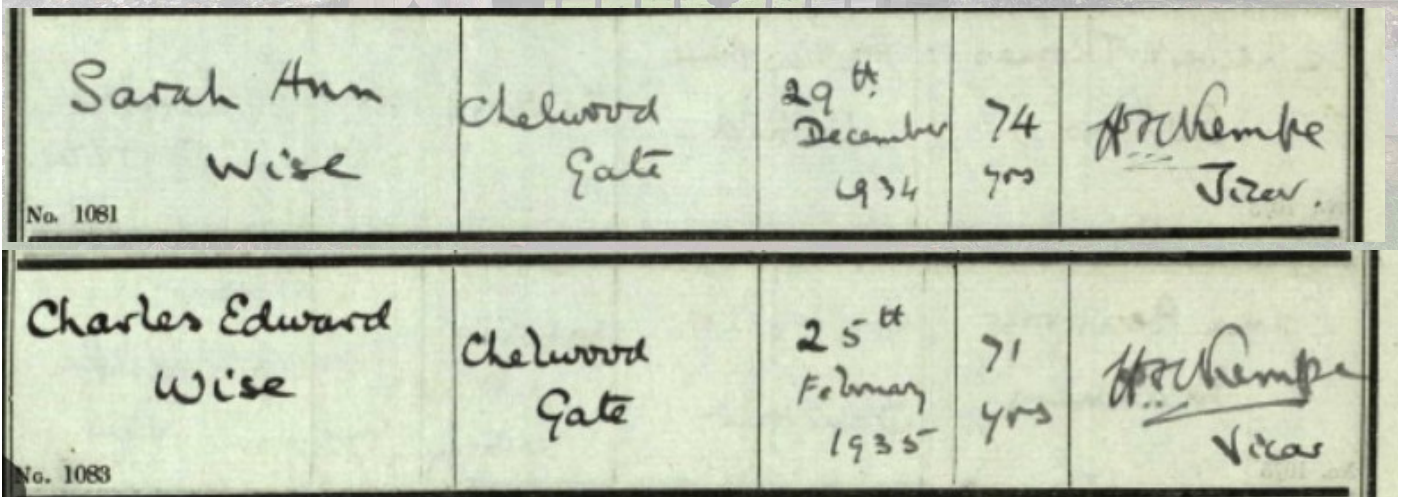 Sarah Ann
Wise
No. 1081
Chelwood
Gate
29th
December
1934
74
yrs
Kempe
Vicar.
Charles Edward
Wise
No. 1083
Chelwood
Gate
25th
February
1935
71
yrs
Kempe
Vicar